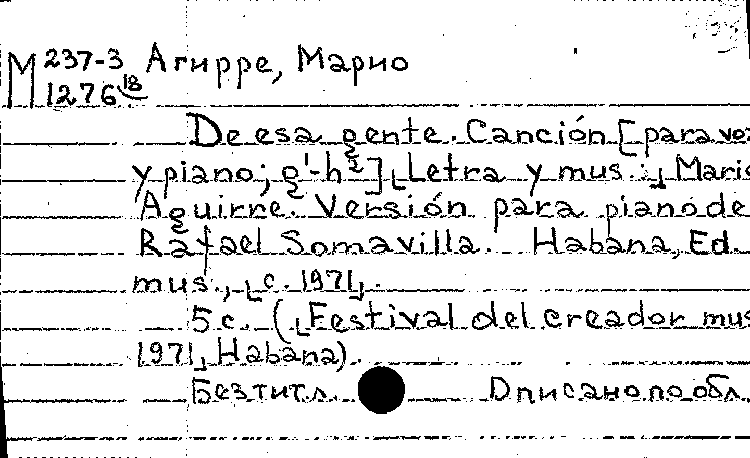 М 237-3 Агирре, Марио
1276 18
De esa gente. Canción [para voz
y piano; g¹-h²] [Letra y mus.:] Mario
Aguirre. Versión para piano de
Rafael Somavilla. Habana, Ed.
mus., [c. 1971].
5 c. ([Festival del creador mus
1971] Habana).
Без тит. л. Описано по обл.